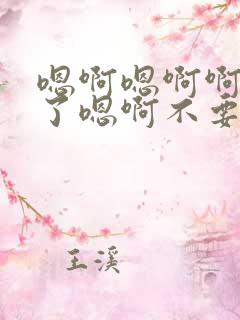 嗯啊嗯啊啊
了嗯啊不要
王溪